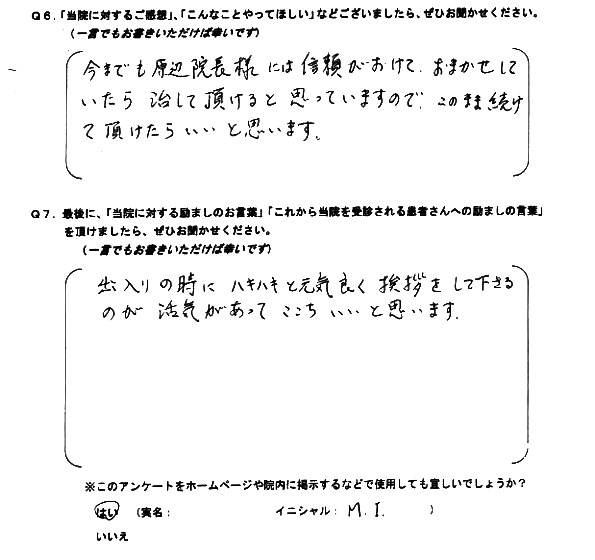 Q6.「当院に対するご感想」、「こんなことやってほしい」などございましたら、ぜひお聞かせください。
(一言でもお書きいただけば幸いです)
今までも原辺院長様には信頼がおけて、おまかせして
いたら治して頂けると思っていますので、このまま続け
て頂けたらいいと思います。
Q7.最後に、「当院に対する励ましのお言葉」「これから当院を受診される患者さんへの励ましの言葉」
を頂けましたら、ぜひお聞かせください。
(一言でもお書きいただけば幸いです)
出入りの時にハキハキと元気良く挨拶をして下さる
のが活気があってここちいいと思います。
※このアンケートをホームページや院内に掲示するなどで使用しても宜しいでしょうか?
はい (実名: イニシャル: M.I. )
いいえ